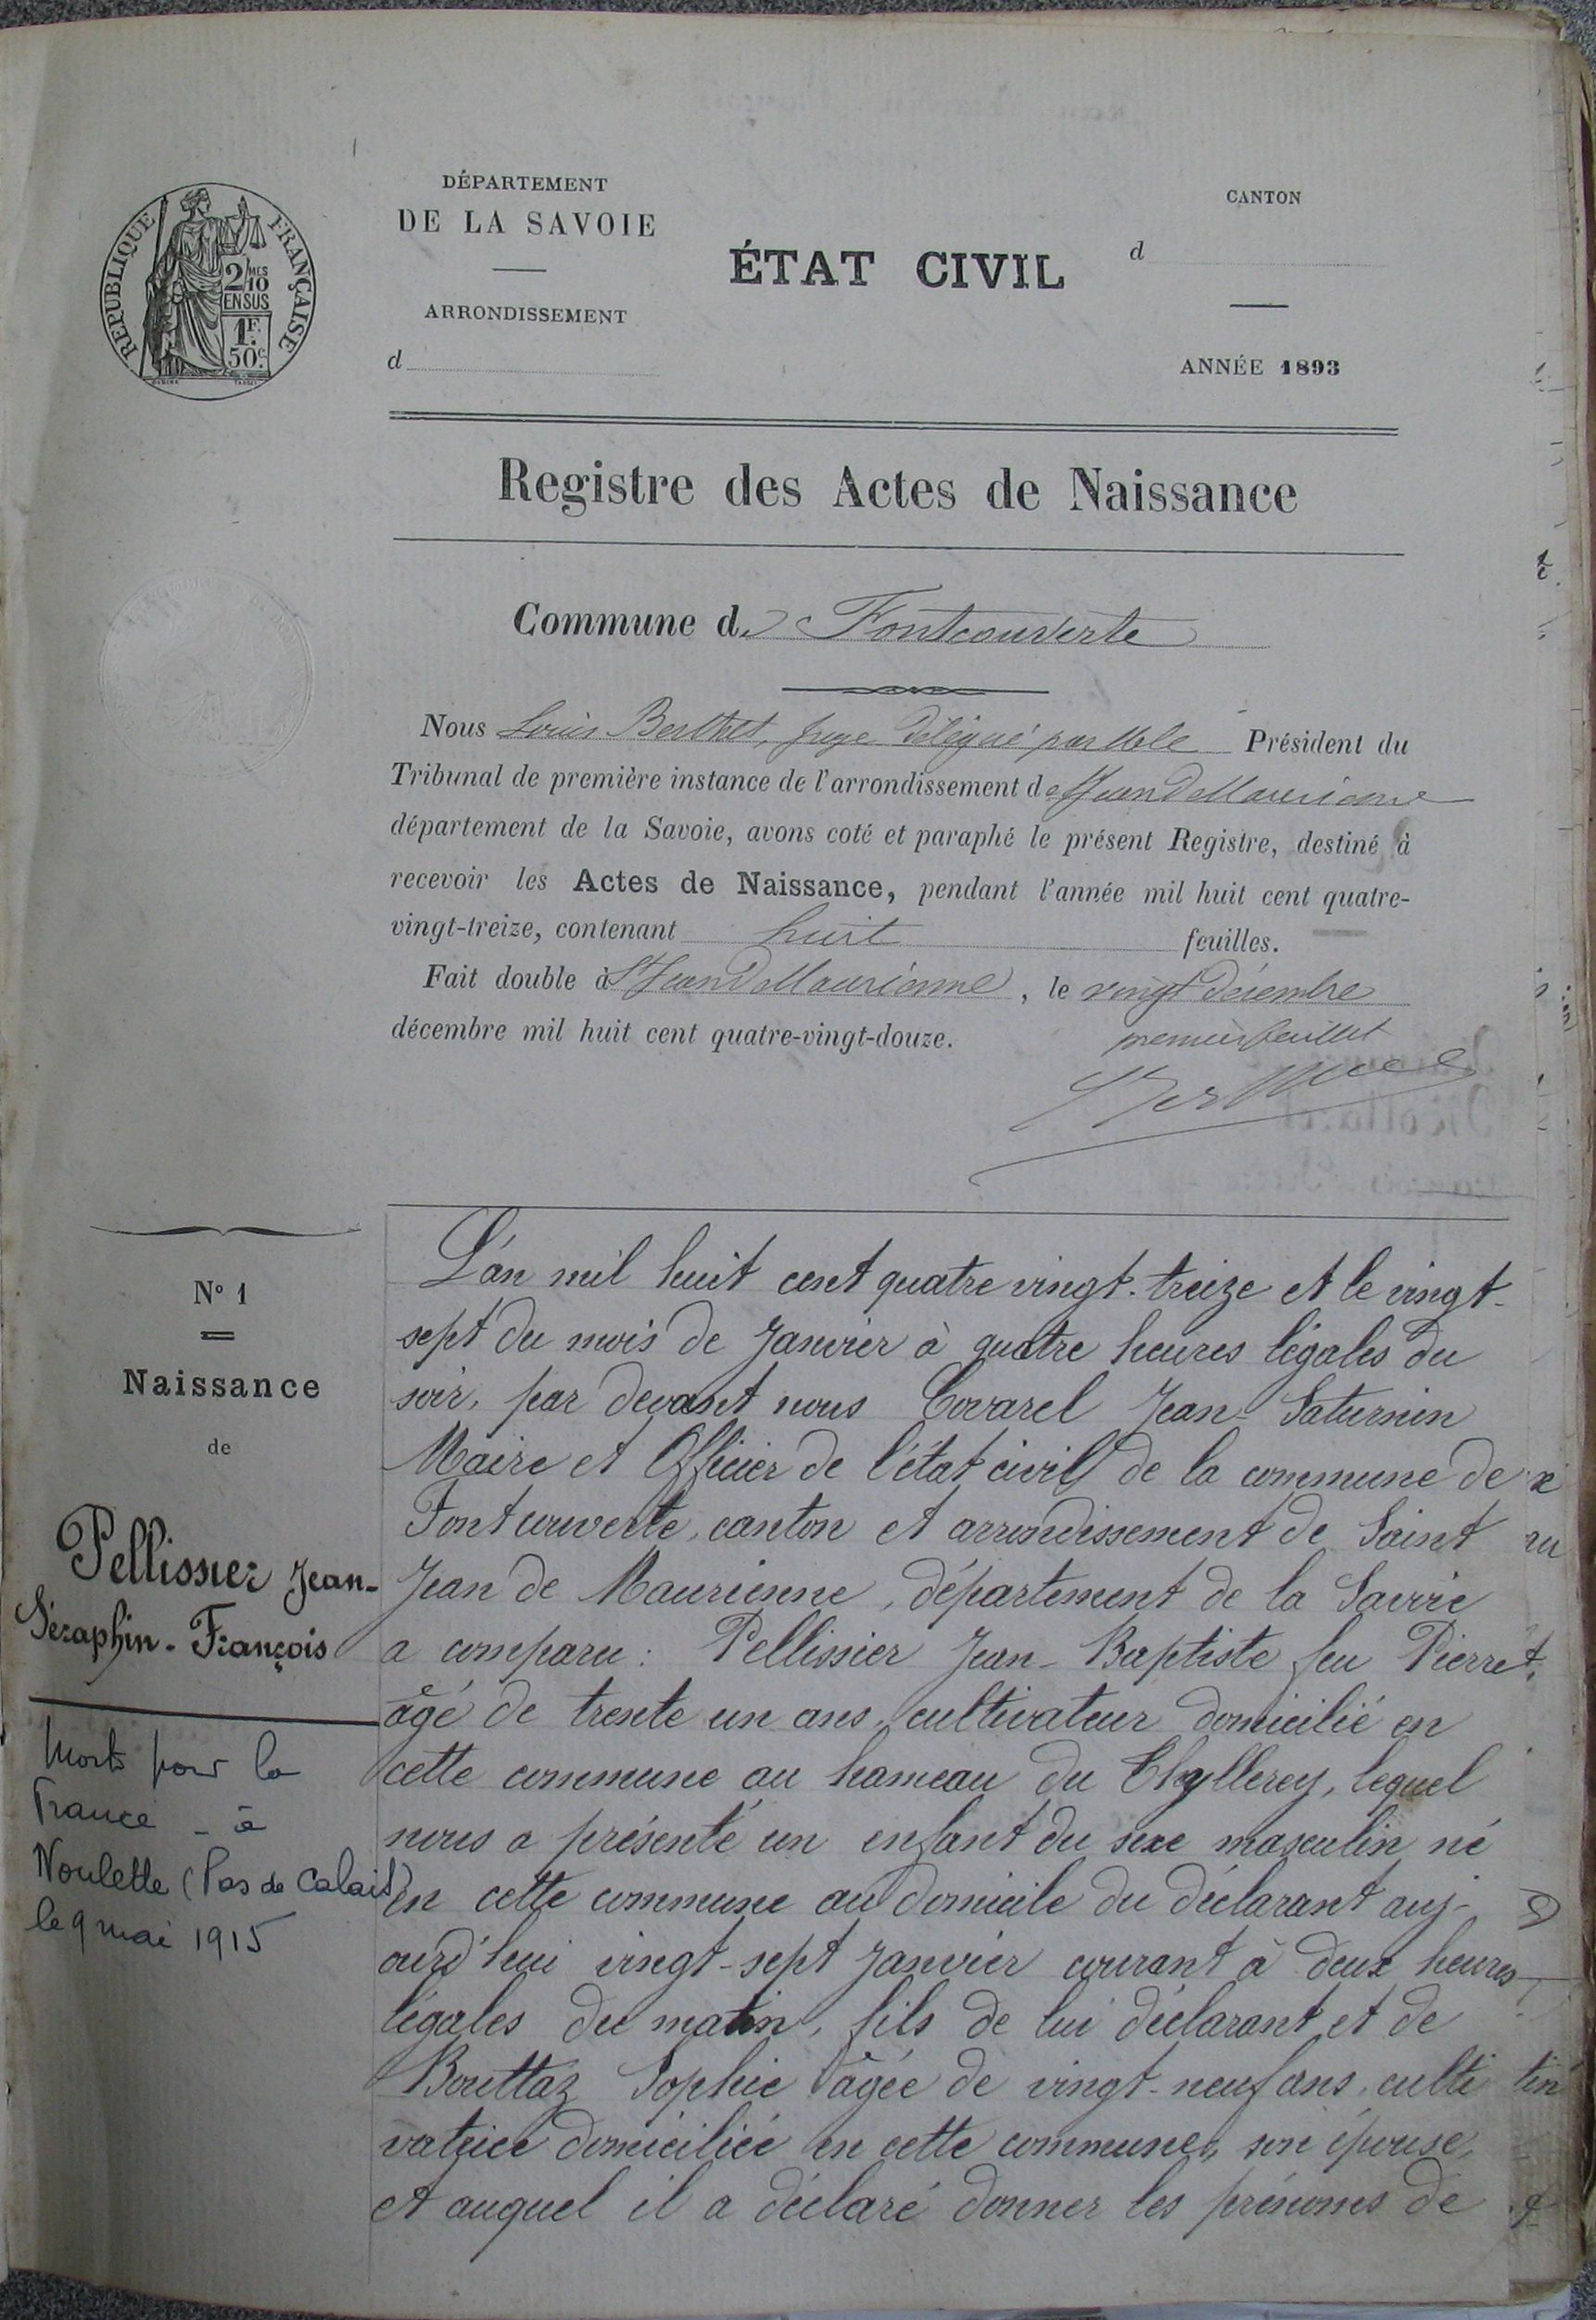 RÉPUBLIQUE FRANÇAISE
2/10 MES
EN SUS
1F.
50c.
DÉPARTEMENT
DE LA SAVOIE
ARRONDISSEMENT
d
ÉTAT CIVIL
CANTON
d
ANNÉE 1893
Registre des Actes de Naissance
Commune de Fontcouverte
Nous Louis Berthet, juge délégué par Mr le Président du
Tribunal de première instance de l'arrondissement de St Jean de Maurienne
département de la Savoie, avons coté et paraphé le présent Registre, destiné à
recevoir les Actes de Naissance, pendant l'année mil huit cent quatre-
vingt-treize, contenant huit feuilles.
Fait double à St Jean de Maurienne, le vingt décembre
décembre mil huit cent quatre-vingt-douze.
premier feuillet
N° 1
Naissance
de
Pellissier Jean-
Séraphin-François
Mort pour la
France - à
Noulette (Pas de Calais)
le 9 mai 1915
L'an mil huit cent quatre vingt-treize et le vingt-
sept du mois de Janvier à quatre heures légales du
soir, par devant nous Covarel Jean-Saturnin
Maire et Officier de l'état civil de la commune de
Fontcouverte, canton et arrondissement de Saint
Jean de Maurienne, département de la Savoie
a comparu : Pellissier Jean-Baptiste feu Pierre
âgé de trente un ans, cultivateur domicilié en
cette commune au hameau du Chyllerey, lequel
nous a présenté un enfant du sexe masculin né
en cette commune au domicile du déclarant auj-
ourd'hui vingt-sept Janvier courant à deux heures
légales du matin, fils de lui déclarant et de
Bouttaz Sophie âgée de vingt-neuf ans, culti
vatrice domiciliée en cette commune, son épouse,
et auquel il a déclaré donner les prénoms de